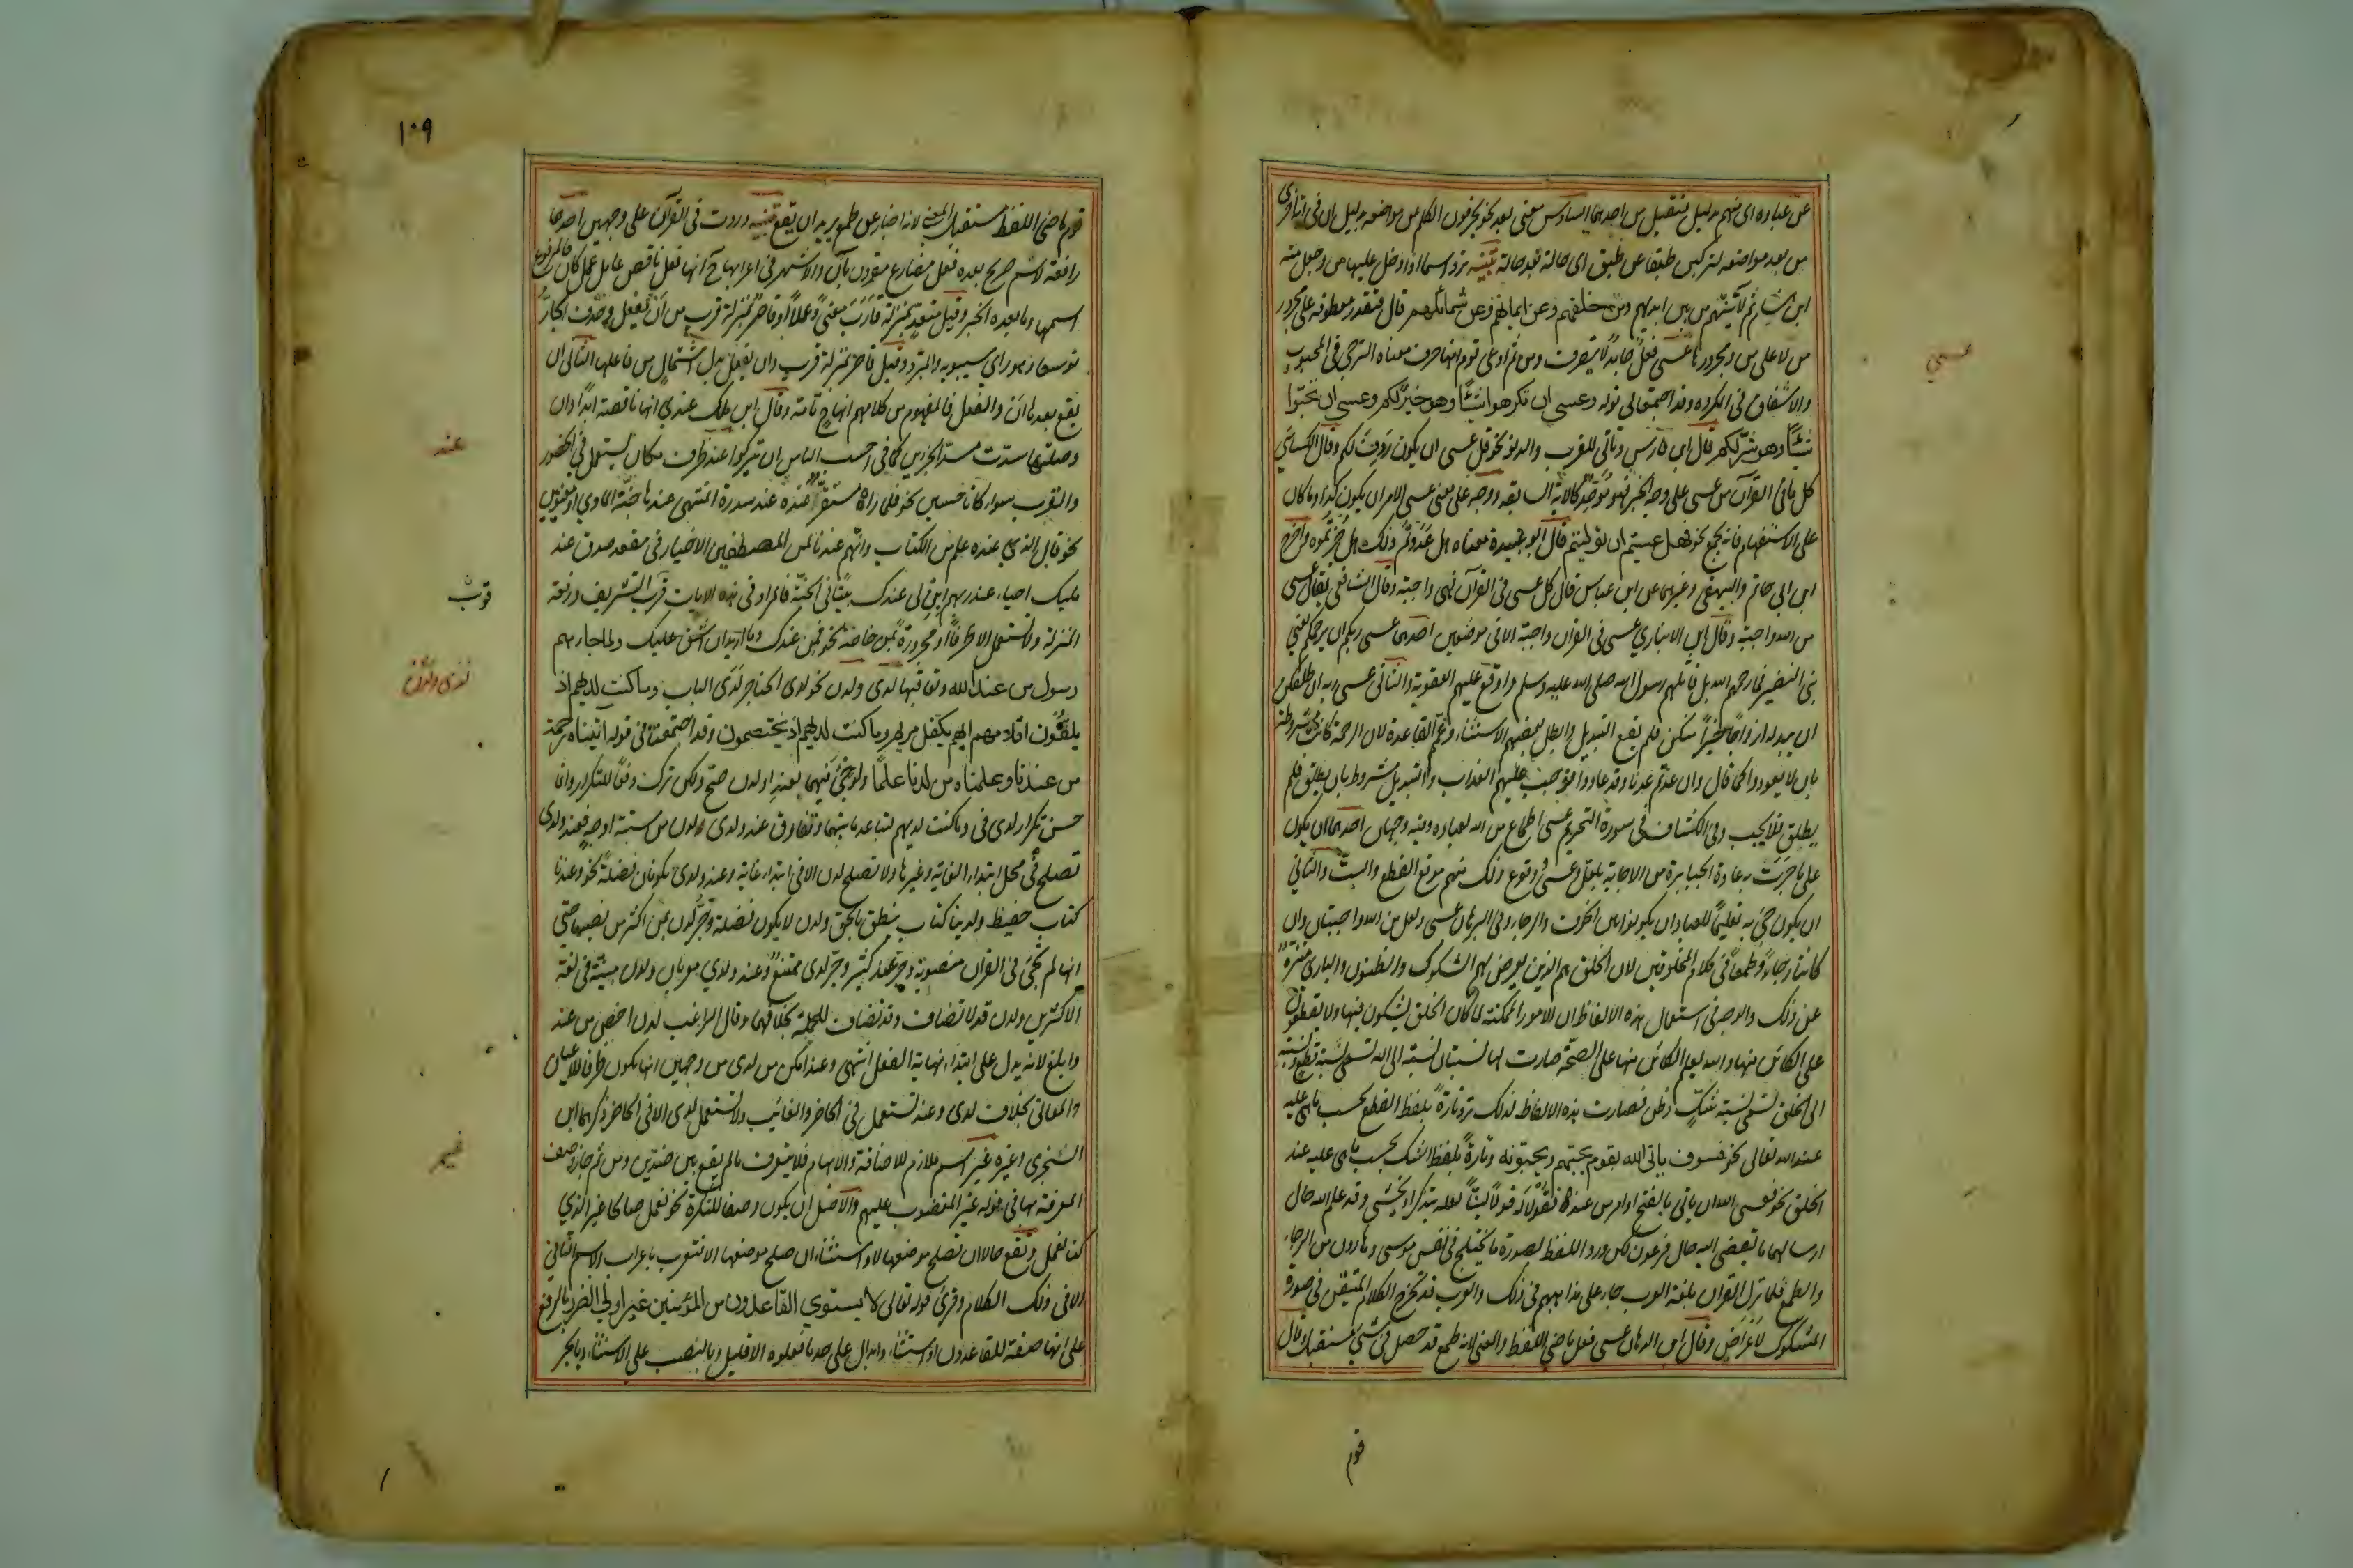 عن عباده اى منهم بدليل فتقبل من احدهما السادس معنى بعد نحو يحرفون الكلم عن مواضعه بدليل ان فى اية اخرى
من بعد مواضعه لتركبن طبقا عن طبق اى حالة بعد حالة تنبيه ترد اسما اذا دخل عليها من وجعل منه
ابن هشام ثم لآتينهم من بين ايديهم ومن خلفهم وعن ايمانهم وعن شمائلهم قال فتقدر معطوفة على مجرور
من لا على من ومجرورها عسى فعل جامد لا يتصرف ومن ثم ادعى قوم انها حرف معناه الترجى فى المحبوب
والاشفاق فى المكروه وقد اجتمعا فى قوله وعسى ان تكرهوا شيئا وهو خير لكم وعسى ان تحبوا
شيئا وهو شر لكم قال ابن فارس وتاتى للقرب والدنو نحو قل عسى ان يكون ردف لكم وقال الكسائى
كل ما فى القرآن من عسى على وجه الخبر فهو موحد كالاية السابقة ووجه على معنى عسى الامر ان يكون كذا وما كان
على الاستفهام فانه يجمع نحو فهل عسيتم ان توليتم قال ابو عبيدة معناه هل عدوتم ذلك هل جزتموه واخرج
ابن ابى حاتم والبيهقى وغيرهما عن ابن عباس قال كل عسى فى القرآن فهى واجبة وقال الشافعى يقال عسى
من الله واجبة وقال ابن الانبارى عسى فى القرآن واجبة الا فى موضعين احدهما عسى ربكم ان يرحمكم يعنى
بنى النضير فما رحمهم الله بل قاتلهم رسول الله صلى الله عليه وسلم واوقع عليهم العقوبة والثانى عسى ربه ان طلقكن
ان يبدله ازواجا خيرا منكن فلم يقع التبديل وابطل بعضهم الاستثناء وعمم القاعدة لان الرحمة كانت مشروطة
بان لا يعودوا كما قال وان عدتم عدنا وقد عادوا فوجب عليهم العذاب والتبديل مشروط بان يطلق فلم
يطلق فلا يجب وفى الكشاف فى سورة التحريم عسى اطماع من الله لعباده وفيه وجهان احدهما ان يكون
على ما جرت به عادة الجبابرة من الاجابة بلعل وعسى ووقوع ذلك منهم موقع القطع والبت والثانى
ان يكون جئ به تعليما للعباد ان يكونوا بين الخوف والرجاء وفى البرهان عسى ولعل من الله واجبتان وان
كانتا رجاء وطمعا فى كلام المخلوقين لان الخلق هم الذين يعرض لهم الشكوك والظنون والبارئ منزه
عن ذلك والوجه فى استعمال هذه الالفاظ ان الامور الممكنة لما كان الخلق يشكون فيها ولا يقطعون
على الكائن منها والله يعلم الكائن منها على الصحة صارت لها نسبتان نسبة الى الله تسمى نسبة قطع ونسبة
الى الخلق تسمى نسبة شك وظن فصارت هذه الالفاظ لذلك ترد تارة بلفظ القطع بحسب ما هى عليه
عند الله تعالى نحو فسوف ياتى الله بقوم يحبهم ويحبونه وتارة بلفظ الشك بحسب ما هى عليه عند
الخلق نحو فعسى الله ان ياتى بالفتح او امر من عنده فقولا له قولا لينا لعله يتذكر او يخشى وقد علم الله حال
ارسالهما ما يفضى اليه حال فرعون لكن ورد اللفظ بصورة ما يختلج فى نفس موسى وهارون من الرجاء
والطمع فلما نزل القرآن بلغة العرب جاء على مذاهبهم فى ذلك والعرب قد تخرج الكلام المتيقن فى صورة
المشكوك لاغراض وقال ابن الدهان عسى فعل ماضى اللفظ والمعنى لانه طمع قد حصل فى شئ مستقبل وقال
عسى
قوم
١٠٩
قوم ماضى اللفظ مستقبل المعنى لانه اخبار عن طمع يريد ان يقع تنبيه وردت فى القرآن على وجهين احدهما
رافعة لاسم صريح بعده فعل مضارع مقرون بان والاشهر فى اعرابها ح انها فعل ناقص عامل عمل كان فالمرفوع
اسمها وما بعده الخبر وقيل متعد بمنزلة قارب معنى وعملا او قاصر بمنزلة قرب من ان يفعل وحذف الجار
توسعا وهو راى سيبويه والمبرد وقيل قاصر بمنزلة قرب وان يفعل بدل اشتمال من فاعلها الثانى ان
يقع بعدها ان والفعل فالمفهوم من كلامهم انها ح تامة وقال ابن ملك عندى انها ناقصة ابدا وان
وصلتها سدت مسد الجزئين كما فى احسب الناس ان يتركوا عند ظرف مكان يستعمل فى الحضور
والقرب سواء كانا حسيين نحو فلما راه مستقرا عنده عند سدرة المنتهى عندها جنة الماوى او معنويين
نحو قال الذى عنده علم من الكتاب وانهم عندنا لمن المصطفين الاخيار فى مقعد صدق عند
مليك احياء عند ربهم ابن لى عندك بيتا فى الجنة فالمراد فى هذه الايات قرب التشريف ورفعة
المنزلة ولا تستعمل الا ظرفا او مجرورة بمن خاصة نحو فمن عندك وما اريد ان اشق عليك ولما جاءهم
رسول من عند الله وتعاقبها لدى ولدن نحو لدى الحناجر لدى الباب وما كنت لديهم اذ
يلقون اقلامهم ايهم يكفل مريم وما كنت لديهم اذ يختصمون وقد اجتمعتا فى قوله آتيناه رحمة
من عندنا وعلمناه من لدنا علما ولو جئ فيهما بعند او لدن صح ولكن ترك دفعا للتكرار وانما
حسن تكرار لدى فى وما كنت لديهم لتباعد ما بينهما وتفارق عند ولدى لدن من ستة اوجه فعند ولدى
تصلح فى محل ابتداء الغاية وغيرها ولا تصلح لدن الا فى ابتداء غاية وعند ولدى يكونان فضلة نحو وعندنا
كتاب حفيظ ولدينا كتاب ينطق بالحق ولدن لا يكون فضلة وجر لدن بمن اكثر من نصبها حتى
انها لم تجئ فى القرآن منصوبة وجر عند كثير وجر لدى ممتنع وعند ولدى معربان ولدن مبنية فى لغة
الاكثرين ولدن قد لا تضاف وقد تضاف للجملة بخلافهما وقال الراغب لدن اخص من عند
وابلغ لانه يدل على ابتداء نهاية الفعل انتهى وعند امكن من لدى من وجهين انها يكون ظرفا للاعيان
والمعانى بخلاف لدى وعند تستعمل فى الحاضر والغائب ولا تستعمل لدى الا فى الحاضر ذكرهما ابن
الشجرى وغيره غير اسم ملازم للاضافة والابهام فلا يتعرف ما لم يقع بين ضدين ومن ثم جاز وصف
المعرفة بها فى قوله غير المغضوب عليهم والاصل ان يكون وصفا للنكرة نحو نعمل صالحا غير الذى
كنا نعمل وتقع حالا ان تصلح موضعها لا واستثناء ان صلح موضعها الا فتعرب باعراب الاسم التالى
الا فى ذلك الكلام وقرئ قوله تعالى لا يستوى القاعدون من المؤمنين غير اولى الضرر بالرفع
على انها صفة للقاعدون او استثناء وابدال على حد ما فعلوه الا قليل وبالنصب على الاستثناء وبالجر
عند
غير